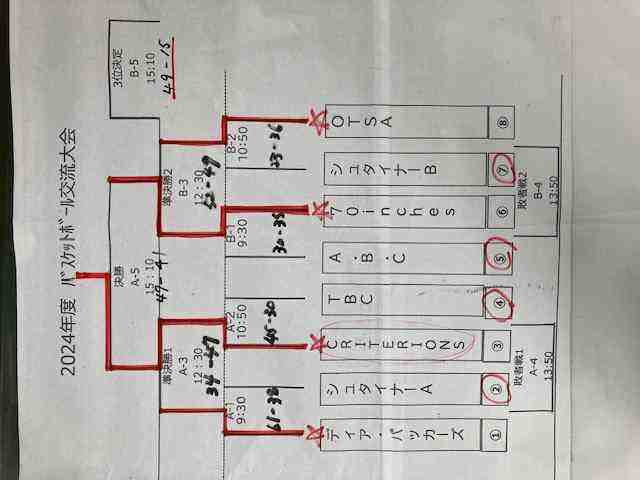 2024年度 バスケットボール交流大会
3位決定
B-5
15:10
49-15
決勝
A-5
15:10
49-41
準決勝1
A-3
12:30
準決勝2
B-3
12:30
52-49
A-1
9:30
61-38
A-2
10:50
45-30
B-1
9:30
30-35
B-2
10:50
23-36
ディア・バッカーズ
シュタイナーA
CRITERIONS
TBC
A・B・C
70inches
シュタイナーB
OTSA
①
②
③
④
⑤
⑥
⑦
⑧
敗者戦1
A-4
13:50
敗者戦2
B-4
13:50